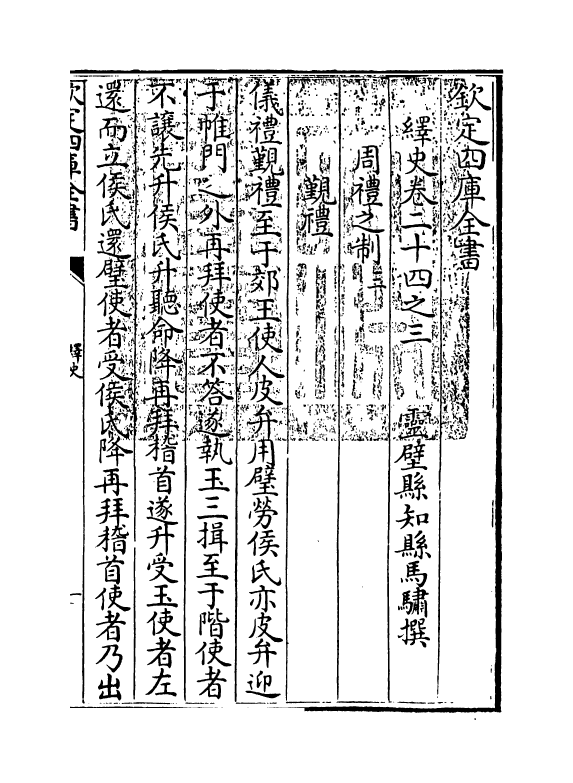 欽定四庫全書
繹史卷二十四之三　靈壁縣知縣馬驌撰
周禮之制三
覲禮
儀禮覲禮至于郊王使人皮弁用璧勞侯氏亦皮弁迎
于帷門之外再拜使者不答遂執玉三揖至于階使者
不讓先升侯氏升聽命降再拜稽首遂升受玉使者左
還而立侯氏還璧使者受侯氏降再拜稽首使者乃出
欽定四庫全書
繹史
一